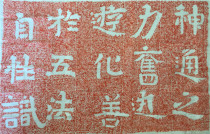 神通之
力奮迅
遊化善
於五法
自性識